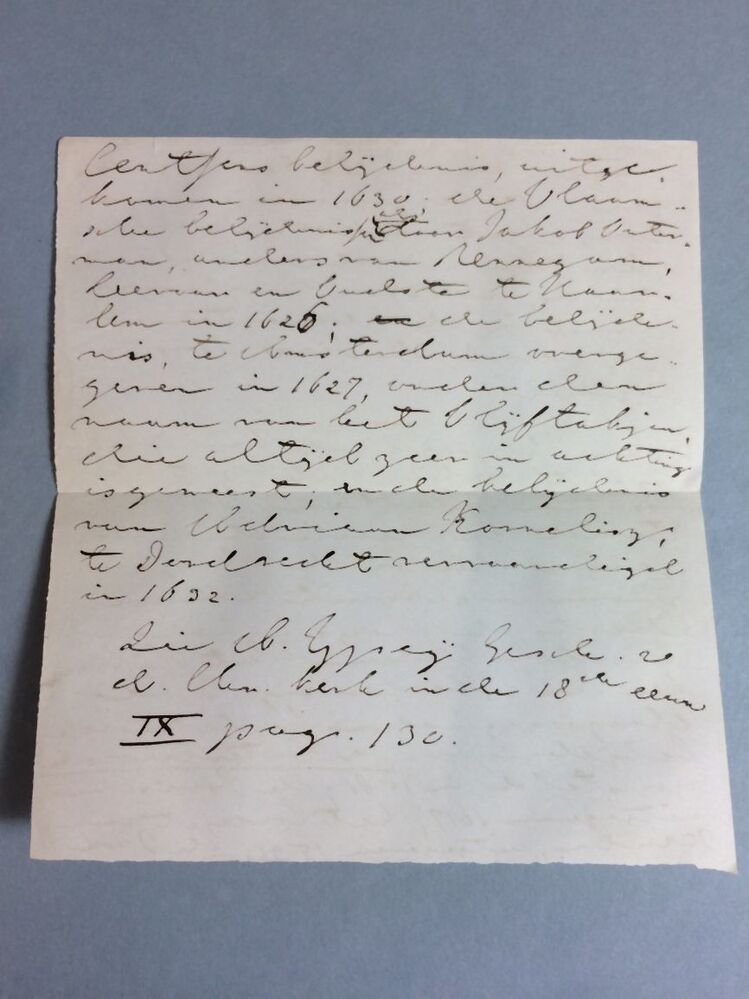 Centsens belijdenis, uitge-
komen in 1630; de Vlaam-
sche belijdenis, door Jakob Outer-
man, anders van Rennegom,
Leeraar en Oudste te Haar-
lem in 1626; de belijde-
nis, te Amsterdam overge-
geven in 1627, onder den
naam van het Olijftakjen,
die altijd zeer in achting
is geweest; en de belijdenis
van Adriaan Kornelisz,
te Dordrecht vervaardigd
in 1632.
Zie A. Ypeij Gesch.
d. Chr. kerk in de 18de eeuw
IX pag. 130.